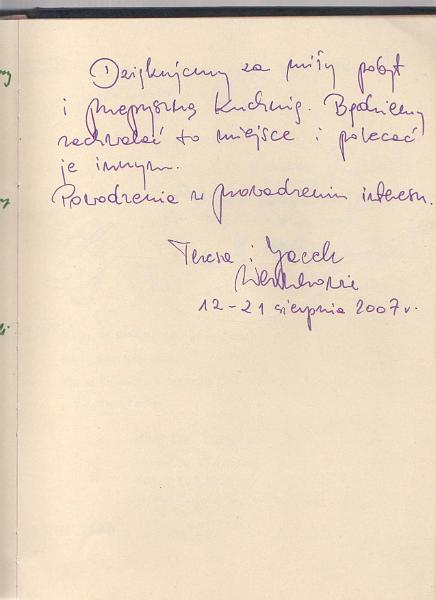 Dziękujemy za miły pobyt
i przepyszną kuchnię. Będziemy
zachwalać to miejsce i polecać
je innym.
Powodzenia w prowadzeniu interesu.
Teresa i Jacek
12-21 sierpnia 2007 r.